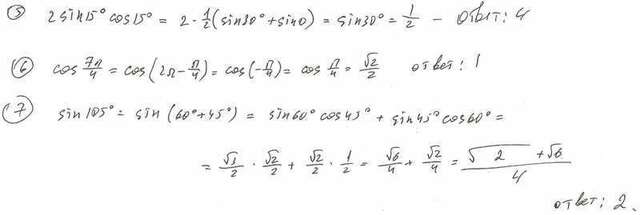 ⑤ 2 sin15° cos15° = 2 · 1/2 (sin30° + sin0) = sin30° = 1/2 – ответ: 4
⑥ cos 7π/4 = cos(2π - π/4) = cos(-π/4) = cos π/4 = √2/2 ответ: 1
⑦ sin 105° = sin (60° + 45°) = sin60° cos45° + sin45° cos60° =
= √3/2 · √2/2 + √2/2 · 1/2 = √6/4 + √2/4 = (√2 + √6)/4
ответ: 2.